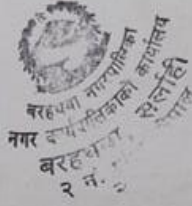 बरहथवा नगरपालिका
नगर कार्यपालिकाको कार्यालय
बरहथवा, सर्लाही
२ नं.